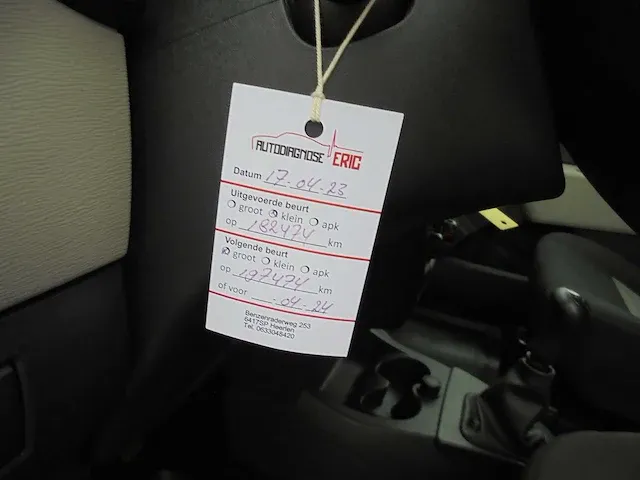 AUTODIAGNOSE ERIC
Datum 17-04-23
Uitgevoerde beurt
groot klein apk
op 182474 km
Volgende beurt
groot klein apk
op 197474 km
of voor -04-24
Benzenraderweg 253
6417SP Heerlen
Tel. 0633048420